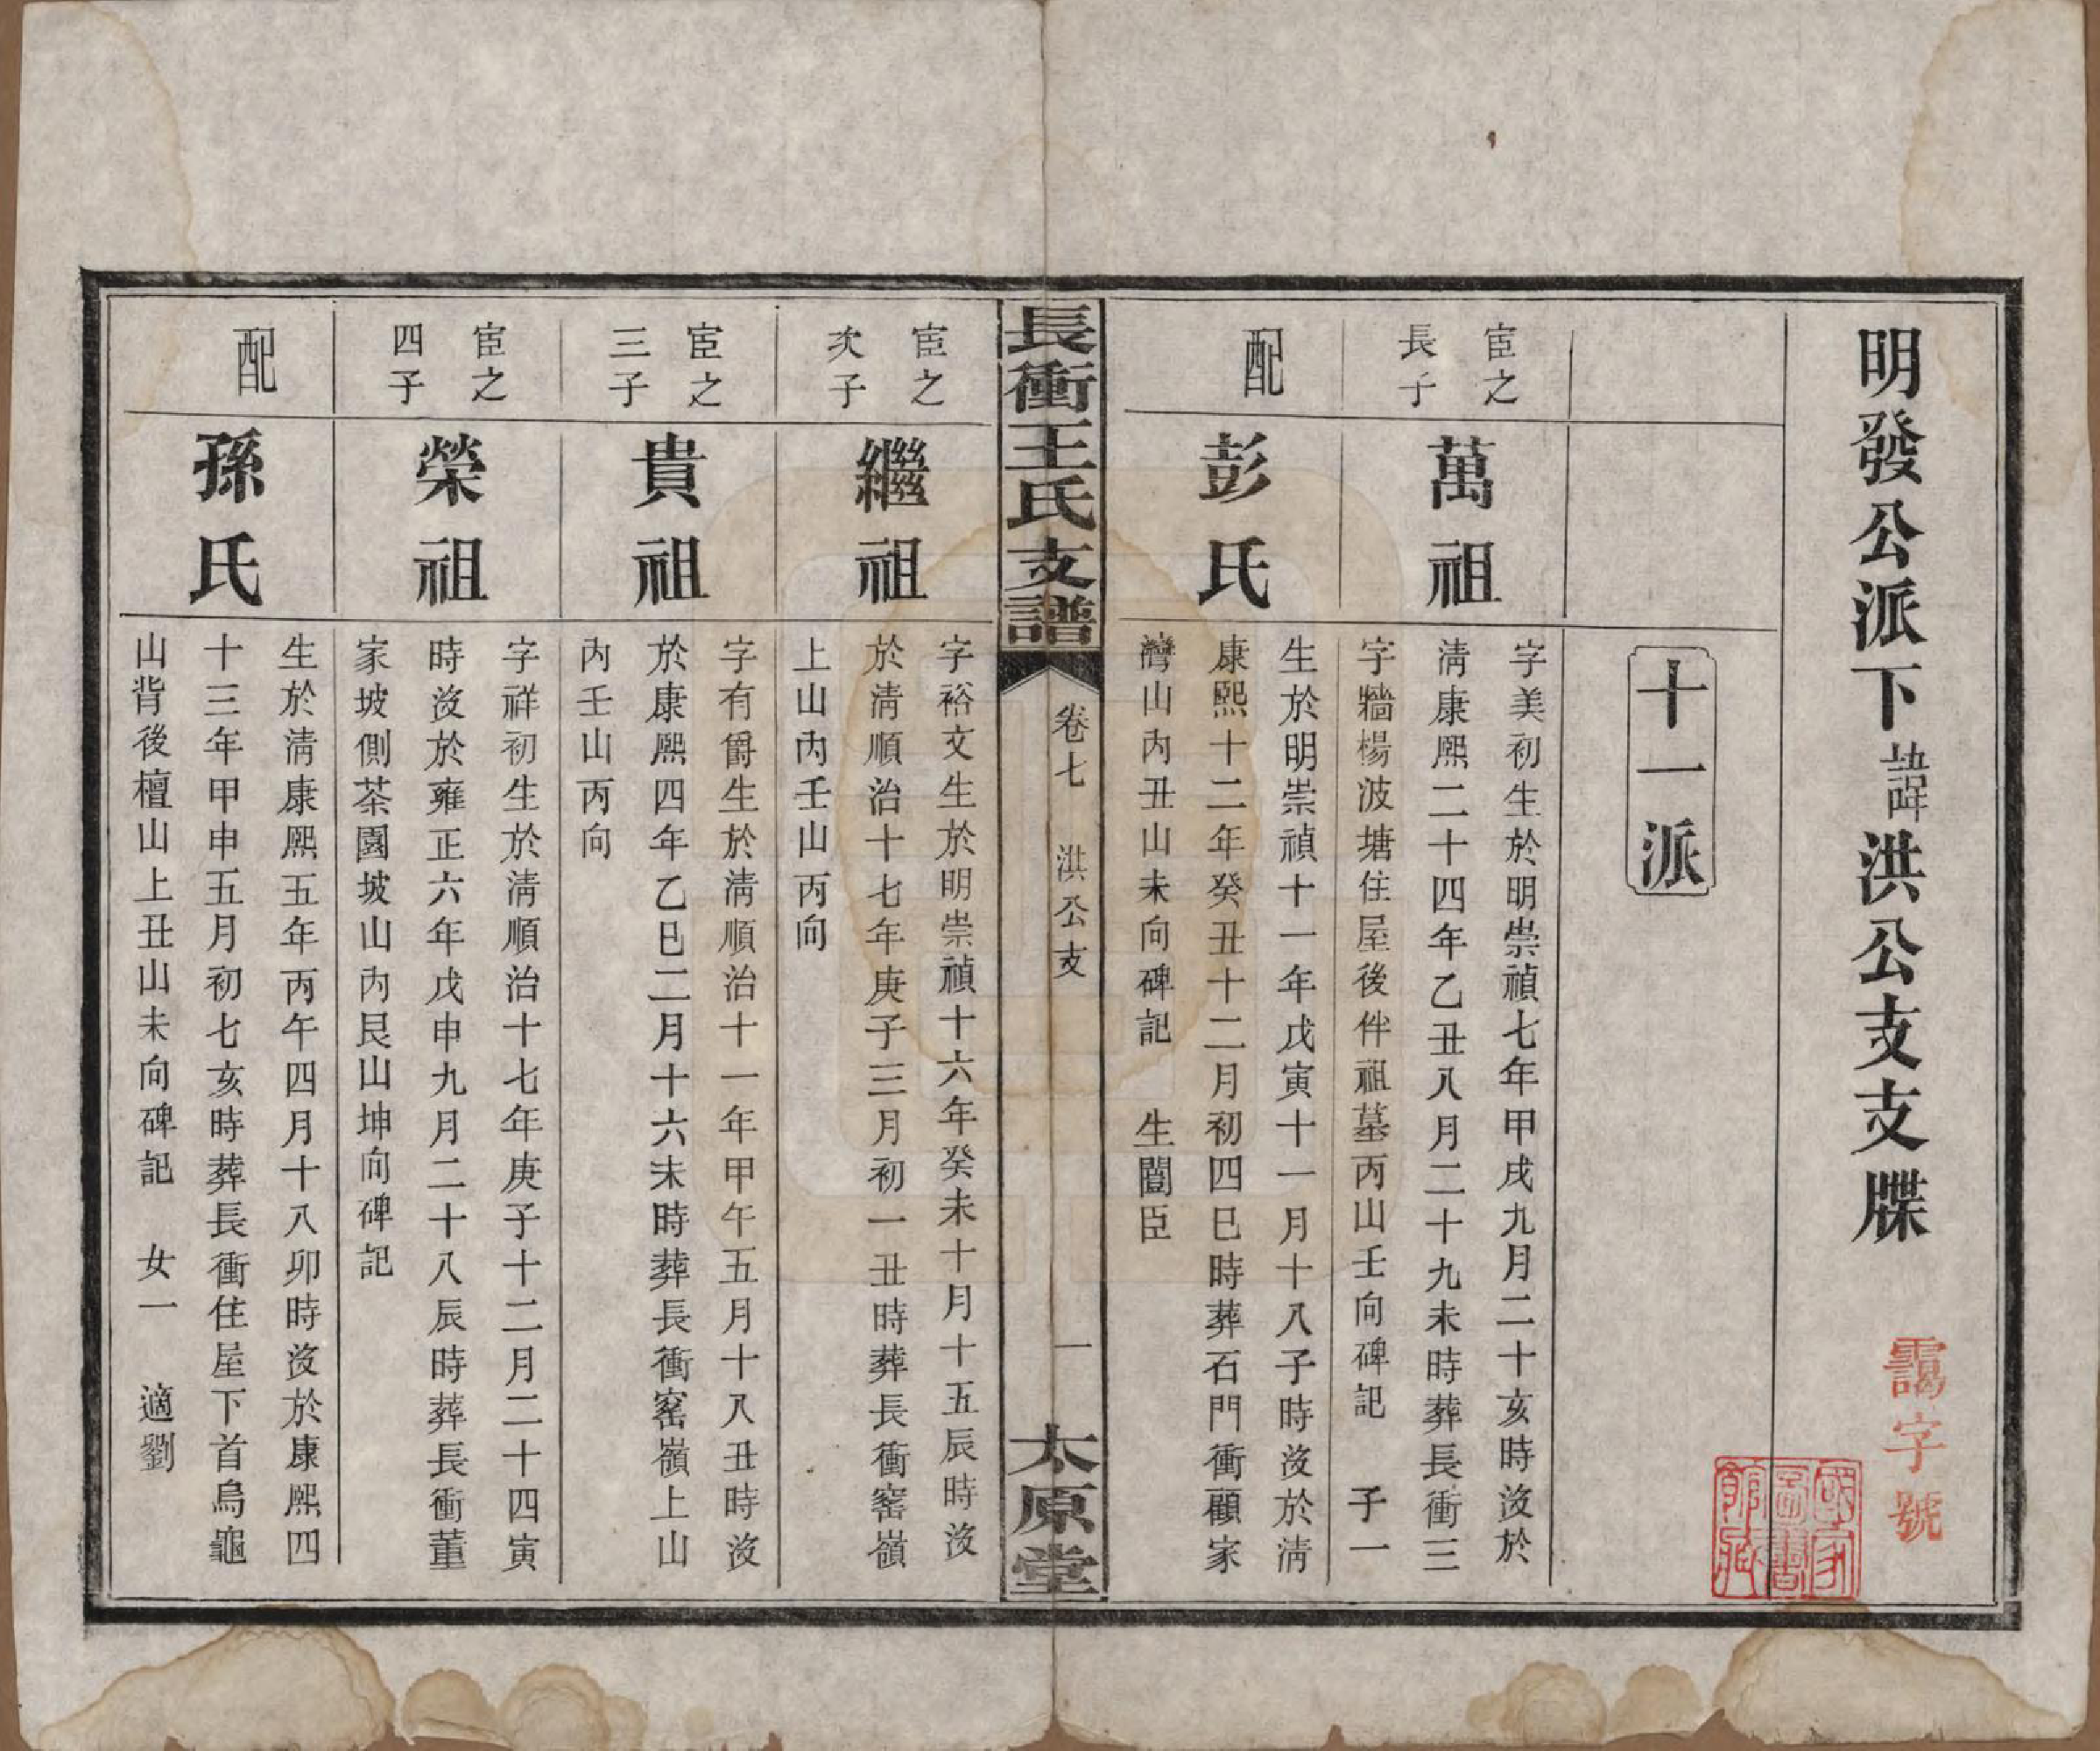 明發公派下諱洪公支支牒
靄字號
國家圖書館藏
十一派
宦之
長子
萬祖
字美初生於明崇禎七年甲戌九月二十亥時沒於
清康熙二十四年乙丑八月二十九未時葬長衝三
字牆楊波塘住屋後伴祖墓丙山壬向碑記 子一
配
彭氏
生於明崇禎十一年戊寅十一月十八子時沒於清
康熙十二年癸丑十二月初四巳時葬石門衝顧家
灣山內丑山未向碑記 生閶臣
長衝王氏支譜
卷七 洪公支
一
太原堂
宦之
次子
繼祖
字裕文生於明崇禎十六年癸未十月十五辰時沒
於清順治十七年庚子三月初一丑時葬長衝窰嶺
上山內壬山丙向
宦之
三子
貴祖
字有爵生於清順治十一年甲午五月十八丑時沒
於康熙四年乙巳二月十六未時葬長衝窰嶺上山
內壬山丙向
宦之
四子
榮祖
字祥初生於清順治十七年庚子十二月二十四寅
時沒於雍正六年戊申九月二十八辰時葬長衝董
家坡側茶園坡山內艮山坤向碑記
配
孫氏
生於清康熙五年丙午四月十八卯時沒於康熙四
十三年甲申五月初七亥時葬長衝住屋下首烏龜
山背後檀山上丑山未向碑記 女一 適劉